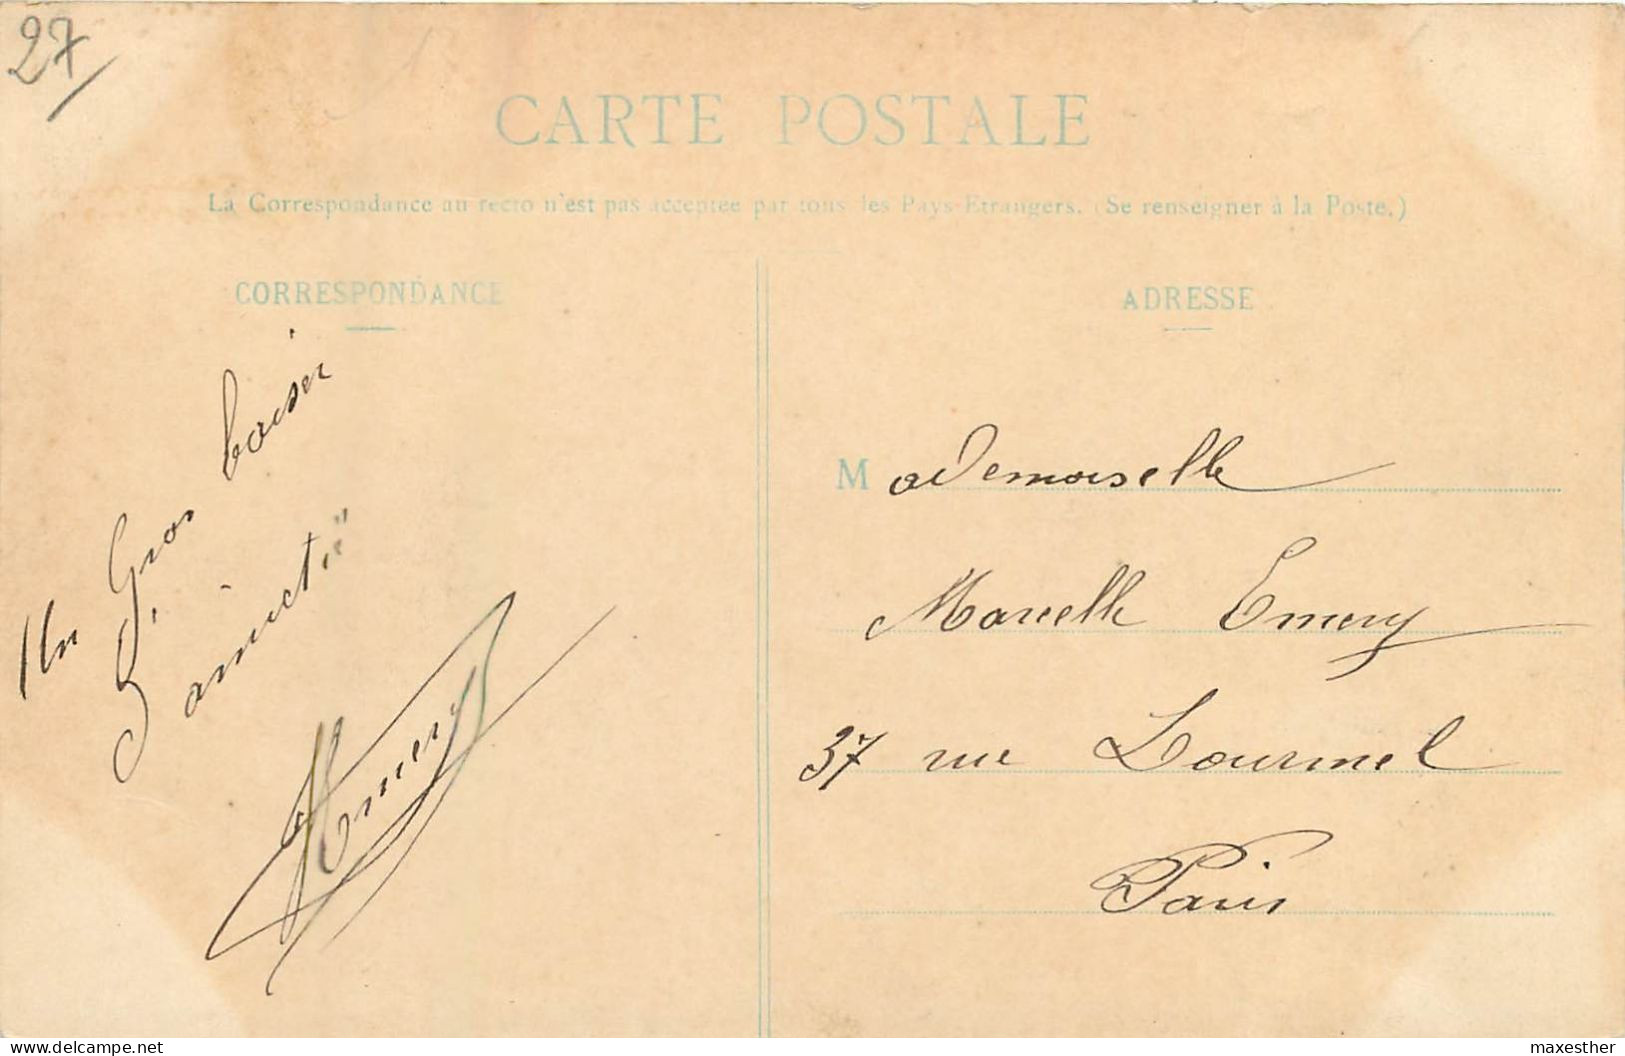 27
CARTE POSTALE
La Correspondance au recto n'est pas acceptée par tous les Pays Etrangers. (Se renseigner à la Poste.)
CORRESPONDANCE
Un Gros baiser
D'amictié
ADRESSE
Mademoiselle
Marcelle Emery
37 rue Lourmel
Paris
delcampe.net
maxesther